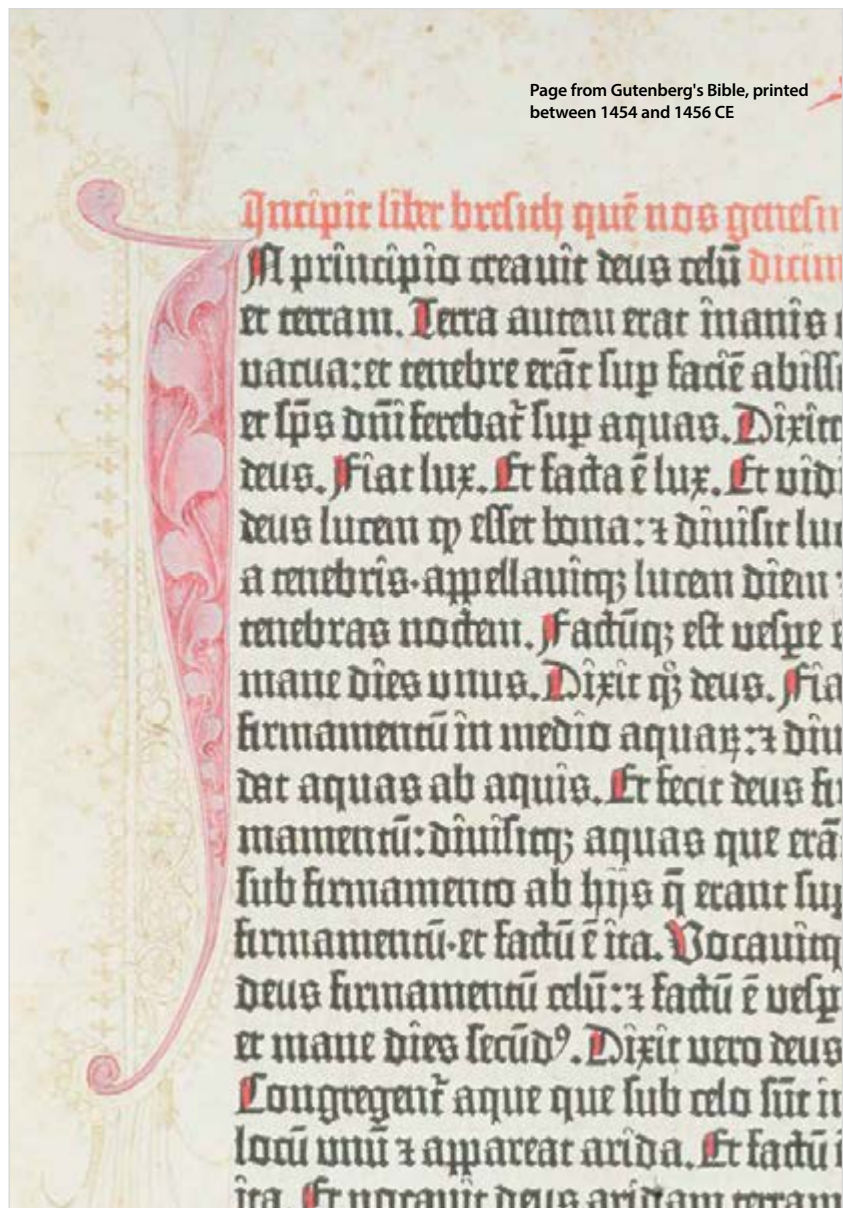 Page from Gutenberg's Bible, printed
between 1454 and 1456 CE
Incipit liber bresich quē nos genesin
IN principio creauit deus celū dicim
et terram. Terra autem erat inanis
uacua: et tenebre erāt sup faciē abissi
et sp̄s dn̄i ferebat᷑ sup aquas. Dixitq
deus. Fiat lux. Et facta ē lux. Et vidi
deus lucem ꝙ esset bona: ⁊ diuisit luc
a tenebris. appellauitqꝫ lucem diem ⁊
tenebras noctem. Factūqꝫ est uespe e
mane dies vnus. Dixit qꝫ deus. Fia
firmamentū in medio aquaꝝ: ⁊ diu
dat aquas ab aquis. Et fecit deus fir
mamentū: diuisitqꝫ aquas que erā
sub firmamento ab hijs q̄ erant sup
firmamentū. et factū ē ita. Vocauitq
deus firmamentū celū: ⁊ factū ē uesp
et mane dies secūdꝰ. Dixit vero deus
Congregent᷑ aque que sub celo sūt in
locū unū ⁊ appareat arida. Et factū
ita. Et uocauit deus aridam terram